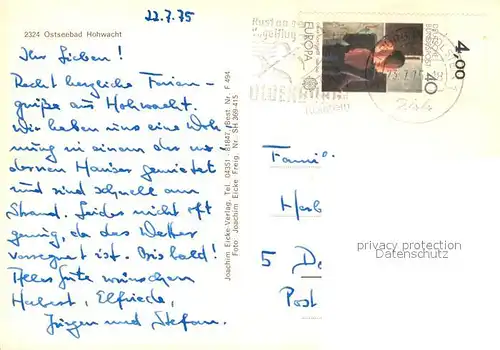 22.7.75
2324 Ostseebad Hohwacht
Ihr Lieben!
Recht herzliche Ferien-
grüße aus Hohwacht.
Wir haben uns eine Woh-
nung in einem der mo-
dernen Häuser gemietet
und sind schnell am
Strand. Leider nicht oft
genug, da das Wetter
verregnet ist. Bis bald!
Alles Gute wünschen
Hubert, Elfriede,
Jürgen und Stefan.
Joachim Eicke-Verlag, Tel. 04351 - 81847, Best. Nr. F 494
Foto: Joachim Eicke Freig. Nr. SH 369-415
EUROPA
DEUTSCHE
BUNDESPOST
40
4,00
OLDENBURG
244
Famil
Herb
5
Post
privacy protection
Datenschutz